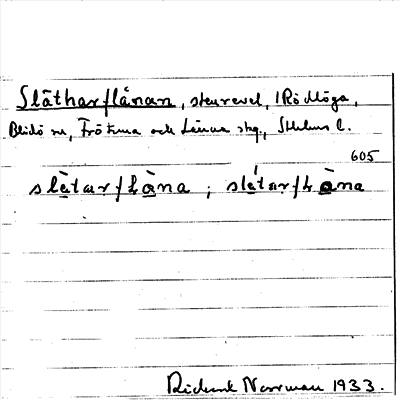 Slätharflånan, stenrevel, i Rödlöga,
Blidö sn, Frötuna och Länna skg., Sthlms l.
605
slètarflàna ; slétarflàna
Rickard Norrman 1933.